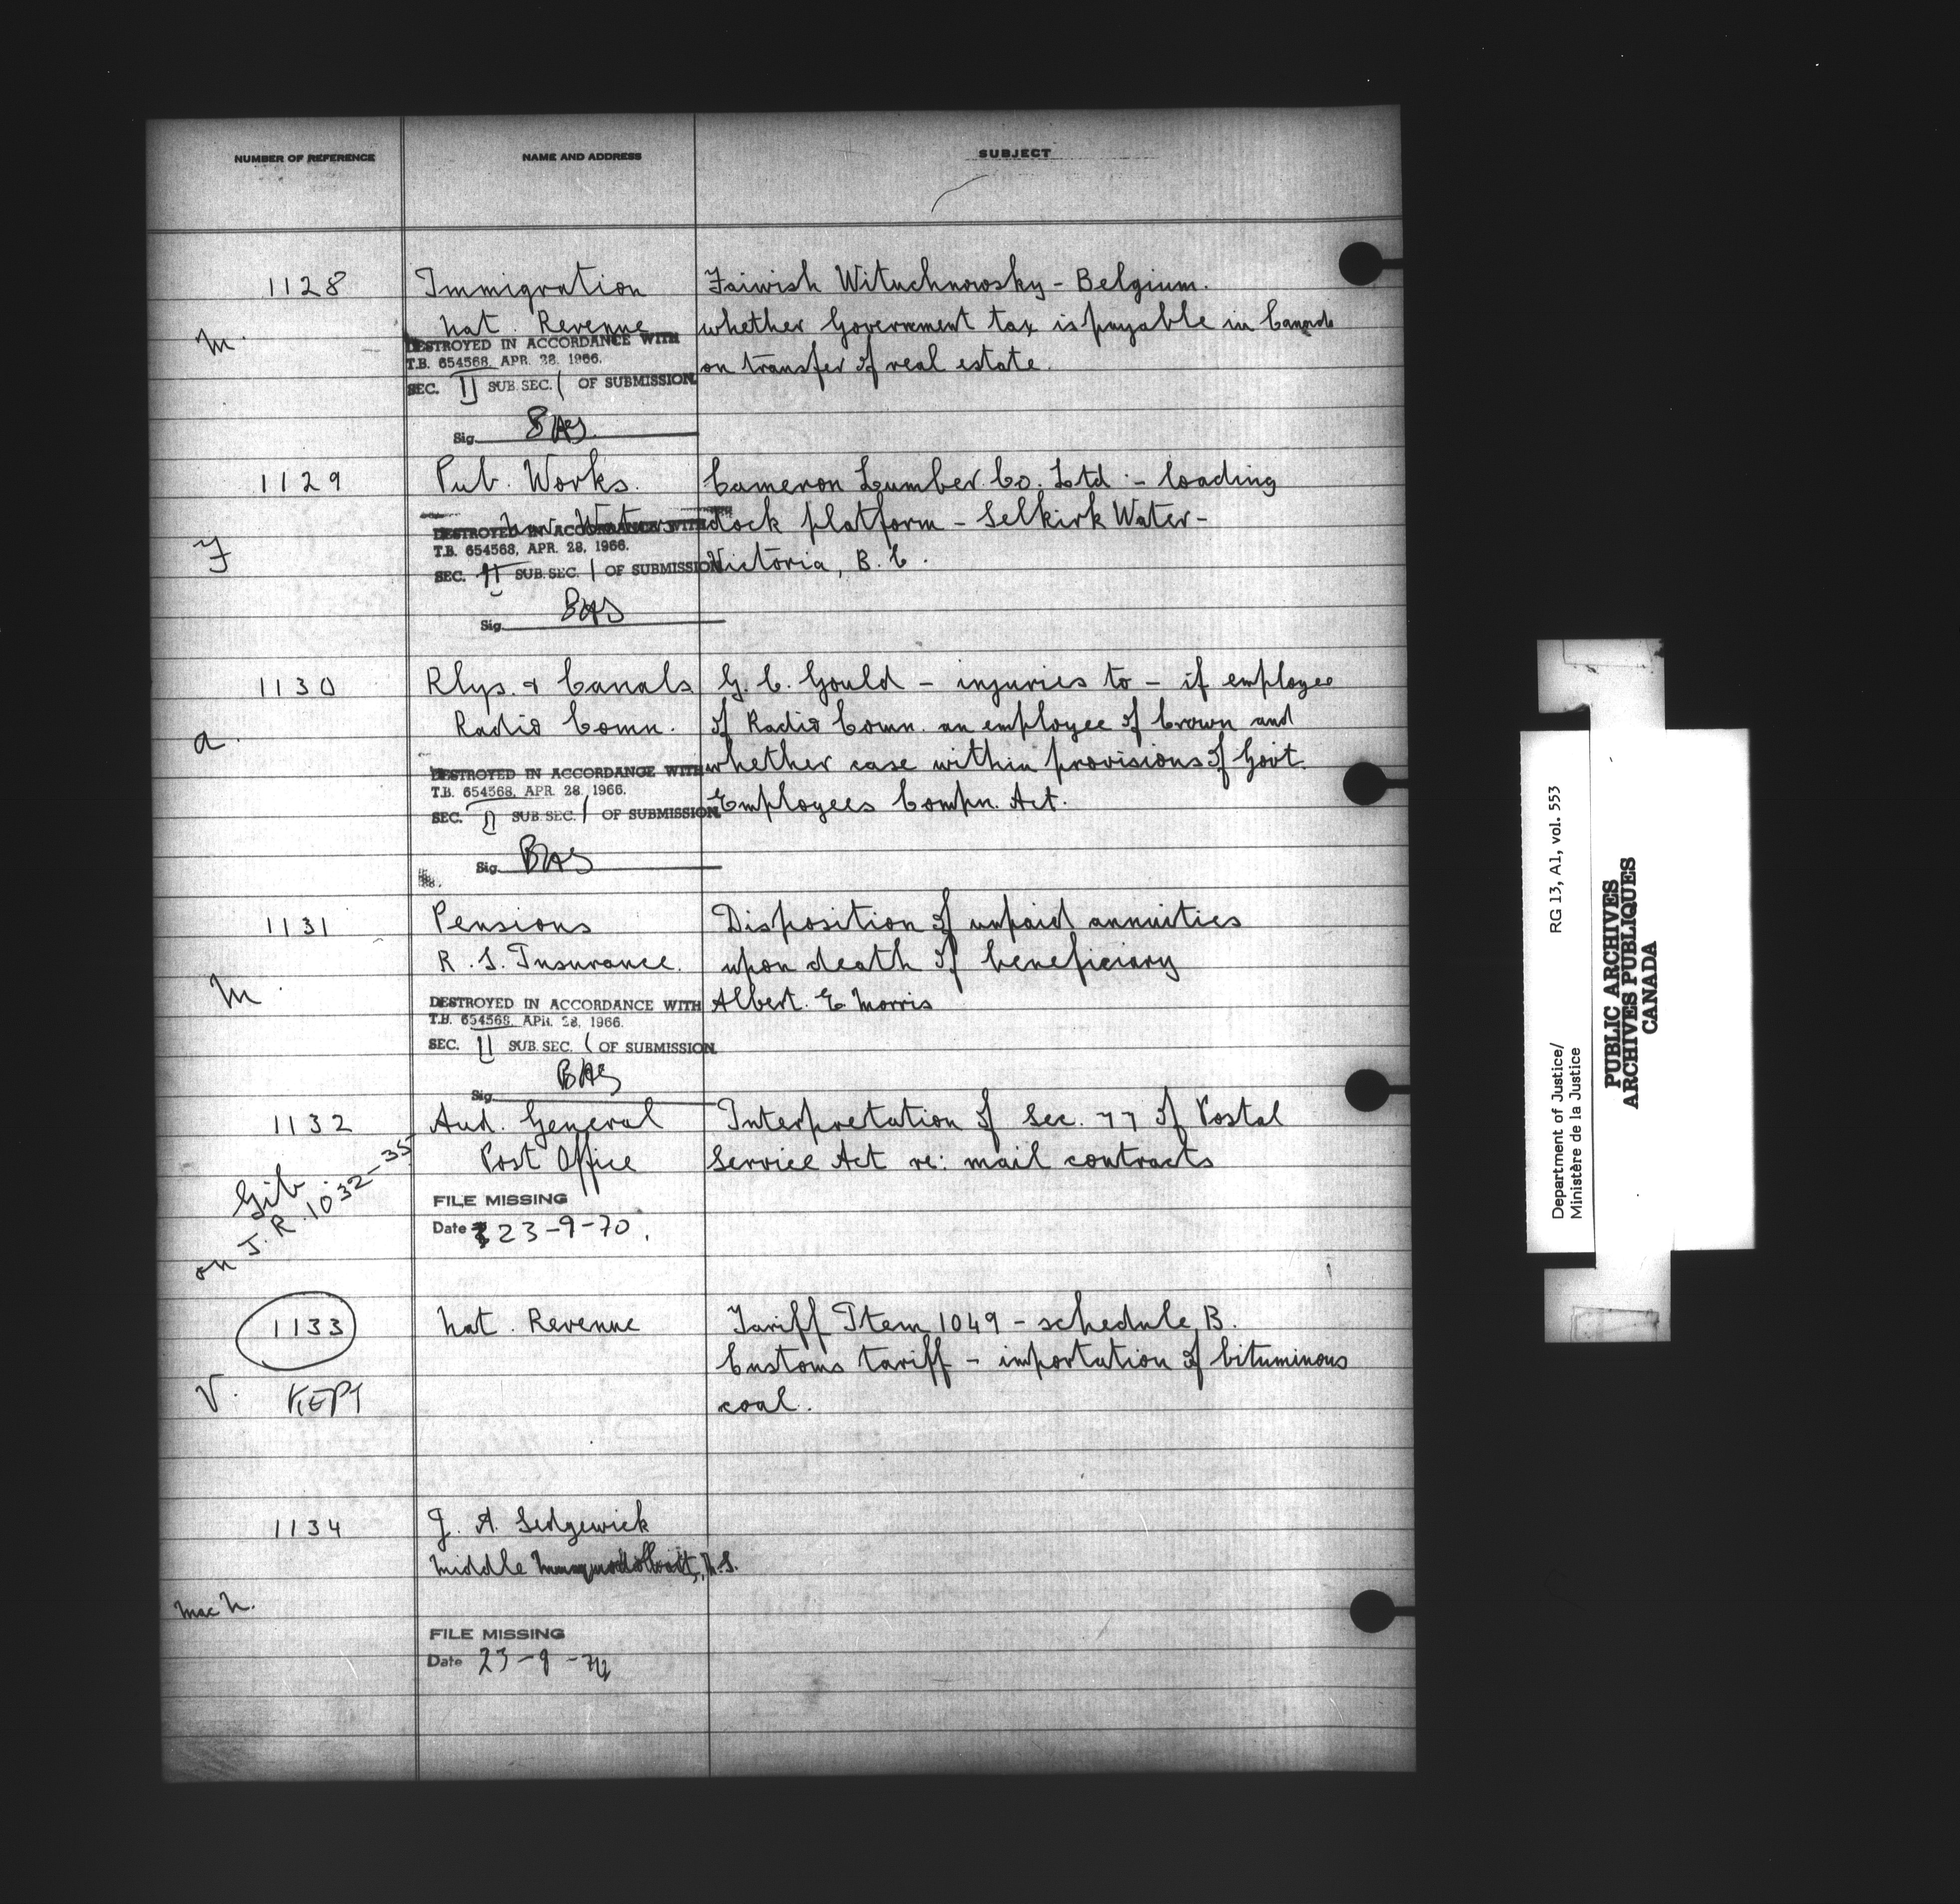 NUMBER OF REFERENCE NAME AND ADDRESS SUBJECT
1128 Immigration Faiwish Wituchnowsky - Belgium.
M. Nat. Revenue whether Government tax is payable in Canada
on transfer of real estate.
DESTROYED IN ACCORDANCE WITH
T.B. 654568, APR. 28, 1966.
SEC. II SUB. SEC. 1 OF SUBMISSION
Sig. BAS
1129 Pub. Works. Cameron Lumber Co. Ltd - loading
dock platform - Selkirk Water -
F Victoria, B.C.
DESTROYED IN ACCORDANCE WITH
T.B. 654568, APR. 28, 1966.
SEC. II SUB. SEC. 1 OF SUBMISSION
Sig. BAS
1130 Rlys. & Canals G. C. Gould - injuries to - if employee
a. Radio Comn. of Radio Comn. an employee of Crown and
whether case within provisions of Govt
Employees Compn. Act.
DESTROYED IN ACCORDANCE WITH
T.B. 654568, APR. 28, 1966.
SEC. II SUB. SEC. 1 OF SUBMISSION
Sig. BAS
1131 Pensions Disposition of unpaid annuities
R. S. Insurance. upon death of beneficiary
M. Albert E Morris
DESTROYED IN ACCORDANCE WITH
T.B. 654568, APR. 28, 1966.
SEC. II SUB. SEC. 1 OF SUBMISSION
Sig. BAS
1132 Aud. General Interpretation of Sec. 77 of Postal
Post Office Service Act re: mail contracts
Gib.
on J.R. 1032-35
FILE MISSING
Date 23-9-70.
1133 Nat. Revenue Tariff Item 1049 - schedule B.
Customs tariff - importation of bituminous
V. KEPT coal.
1134 J. A. Sedgewick
Middle N.S.
Mac N.
FILE MISSING
Date 23-9-70
Department of Justice/ RG 13, A1, vol. 553
Ministère de la Justice
PUBLIC ARCHIVES
ARCHIVES PUBLIQUES
CANADA